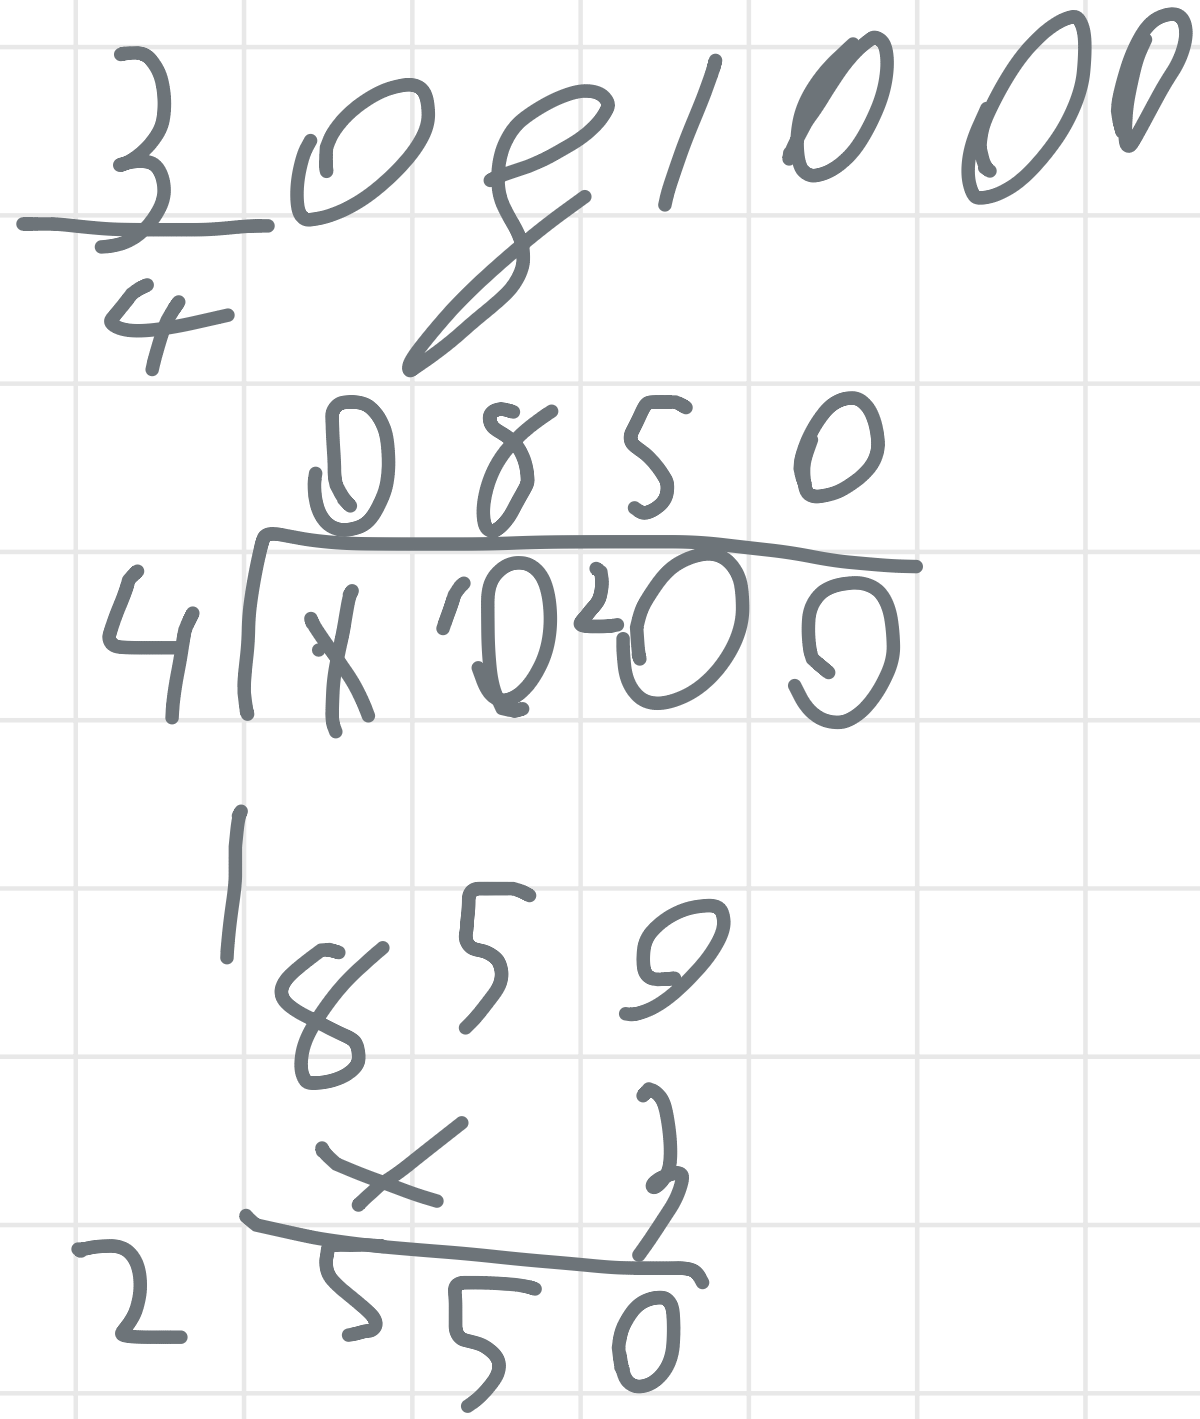 3
of 1000
4
0850
4 1 ¹0 ²0 0
1
850
× 3
2550